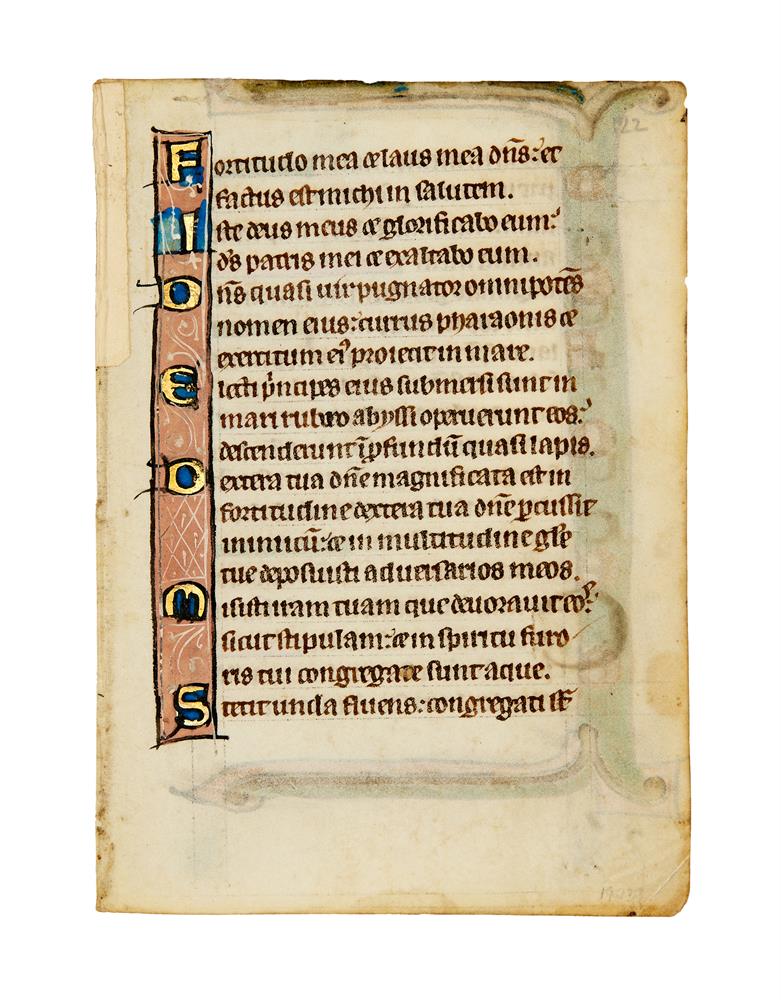 Fortitudo mea ⁊ laus mea dn̄s: et
factus est michi in salutem.
Iste deus meus ⁊ glorificabo eum:
ds̄ patris mei ⁊ exaltabo eum.
Dn̄s quasi uir pugnator omnipotēs
nomen eius: currus pharaonis ⁊
exercitum ei᾽ proiecit in mare.
Electi p̄ncipes eius submersi sunt in
mari rubro abyssi operuerunt eos:
descenderunt ī p̄fundū quasi lapis.
Dextera tua dn̄e magnificata est in
fortitudine dextera tua dn̄e ꝑcussit
inimicū: ⁊ in multitudine gl̄e
tue deposuisti aduersarios meos.
Misisti iram tuam que deuorauit eos:
sicut stipulam: ⁊ in spiritu furo
ris tui congregate sunt aque.
Stetit unda fluens: congregati st̄
122